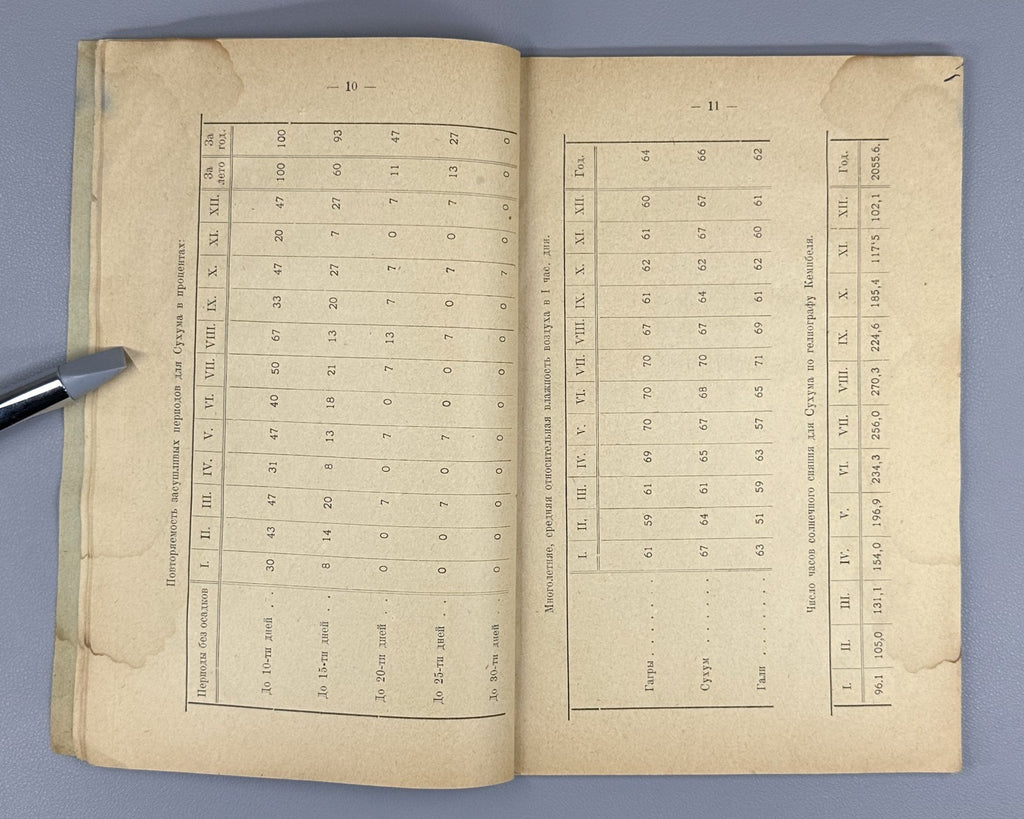 — 10 —
Повторяемость засушливых периодов для Сухума в процентах:
Периоды без осадков I. II. III. IV. V. VI. VII. VIII. IX. X. XI. XII. За лето За год.
До 10-ти дней . . . 30 43 47 31 47 40 50 67 33 47 20 47 100 100
До 15-ти дней . . . 8 14 20 8 13 18 21 13 20 27 7 27 60 93
До 20-ти дней . . . 0 0 7 0 7 0 7 13 7 7 0 7 11 47
До 25-ти дней . . . 0 0 7 0 7 0 0 7 0 7 0 7 13 27
До 30-ти дней . . . 0 0 0 0 0 0 0 0 0 7 0 0 0 0
— 11 —
Многолетняе, средняя относительная влажность воздуха в 1 час. дня.
I. II. III. IV. V. VI. VII. VIII. IX. X. XI. XII. Год.
Гагры . . . . . . 61 59 61 69 70 70 70 67 61 62 61 60 64
Сухум . . . . . . 67 64 61 65 67 68 70 67 64 62 67 67 66
Гали . . . . . . . 63 51 59 63 57 65 71 69 61 62 60 61 62
Число часов солнечного сияния для Сухума по гелиографу Кемпбеля.
I. II. III. IV. V. VI. VII. VIII. IX. X. XI. XII. Год.
96,1 105,0 131,1 154,0 196,9 234,3 256,0 270,3 224,6 185,4 117'5 102,1 2055,6.